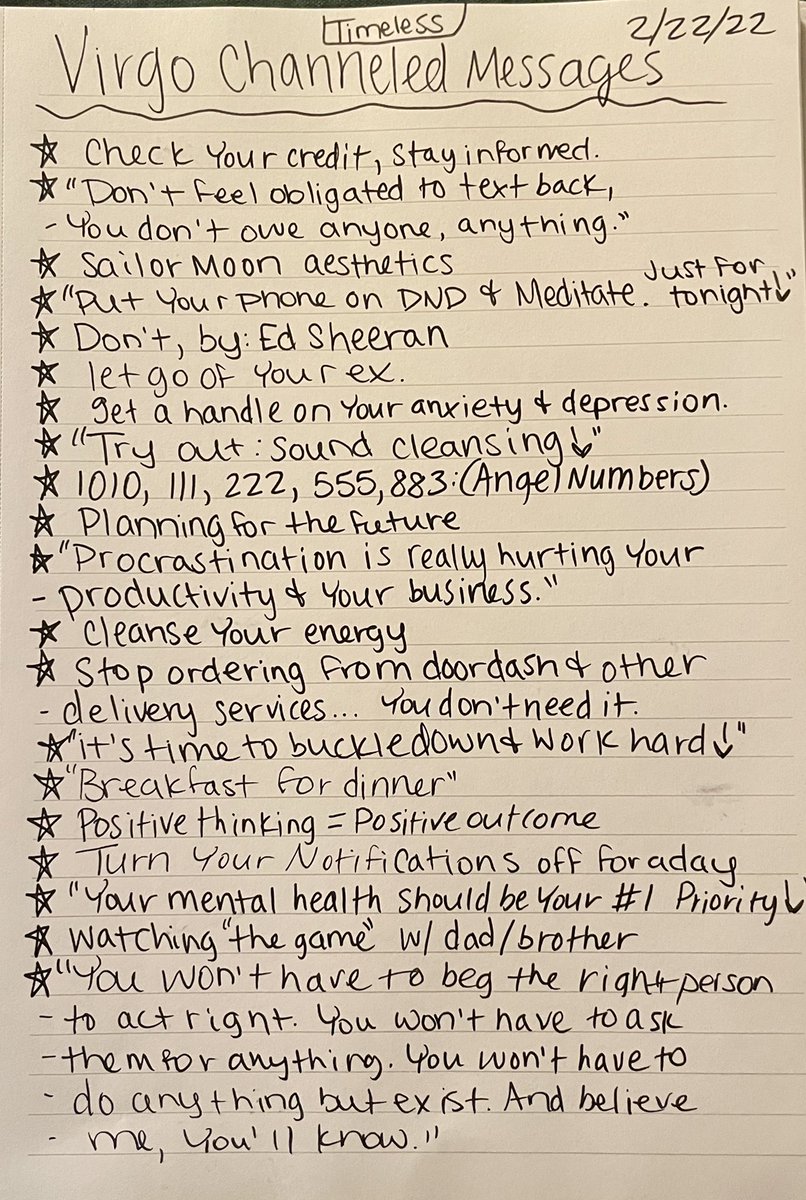 Timeless
2/22/22
Virgo Channeled Messages
☆ Check Your credit, Stay informed.
☆ "Don't feel obligated to text back,
- You don't owe anyone, anything."
☆ Sailor Moon aesthetics
☆ "Put Your phone on DND & Meditate. Just for tonight↓"
☆ Don't, by: Ed Sheeran
☆ let go of Your ex.
☆ get a handle on Your anxiety & depression.
☆ "Try out: Sound cleansing↓"
☆ 1010, 111, 222, 555, 883: (Angel Numbers)
☆ Planning for the future
☆ "Procrastination is really hurting Your
- productivity & Your business."
☆ Cleanse Your energy
☆ Stop ordering from doordash & other
- delivery services... You don't need it.
☆ "it's time to buckle down & Work hard↓"
☆ "Breakfast for dinner"
☆ Positive thinking = Positive outcome
☆ Turn Your Notifications off for a day
☆ "Your mental health Should be Your #1 Priority↓"
☆ Watching "the game" w/ dad/brother
☆ "You won't have to beg the right person
- to act right. You won't have to ask
- them for anything. You won't have to
- do anything but exist. And believe
- me, You'll know."